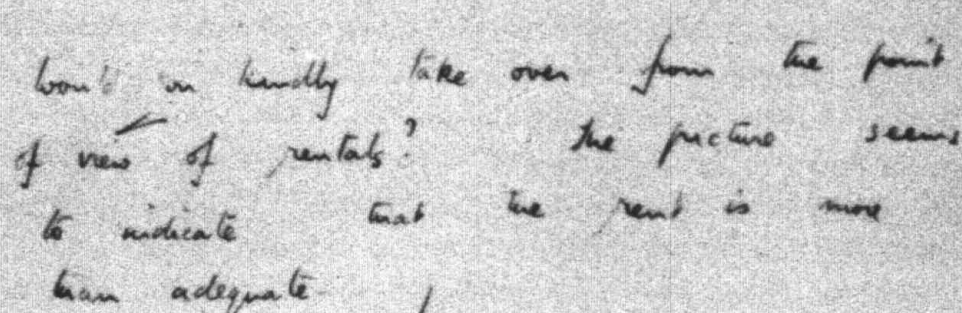 Would you kindly take over from the point
of view of rentals? The picture seems
to indicate that the rent is more
than adequate